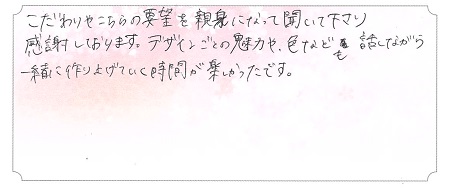 こだわりやこちらの要望を親身になって聞いて下マリ
感謝しております。デザインごとの魅力や、色なども話しながら
一緒に作り上げていく時間が楽しかったです。